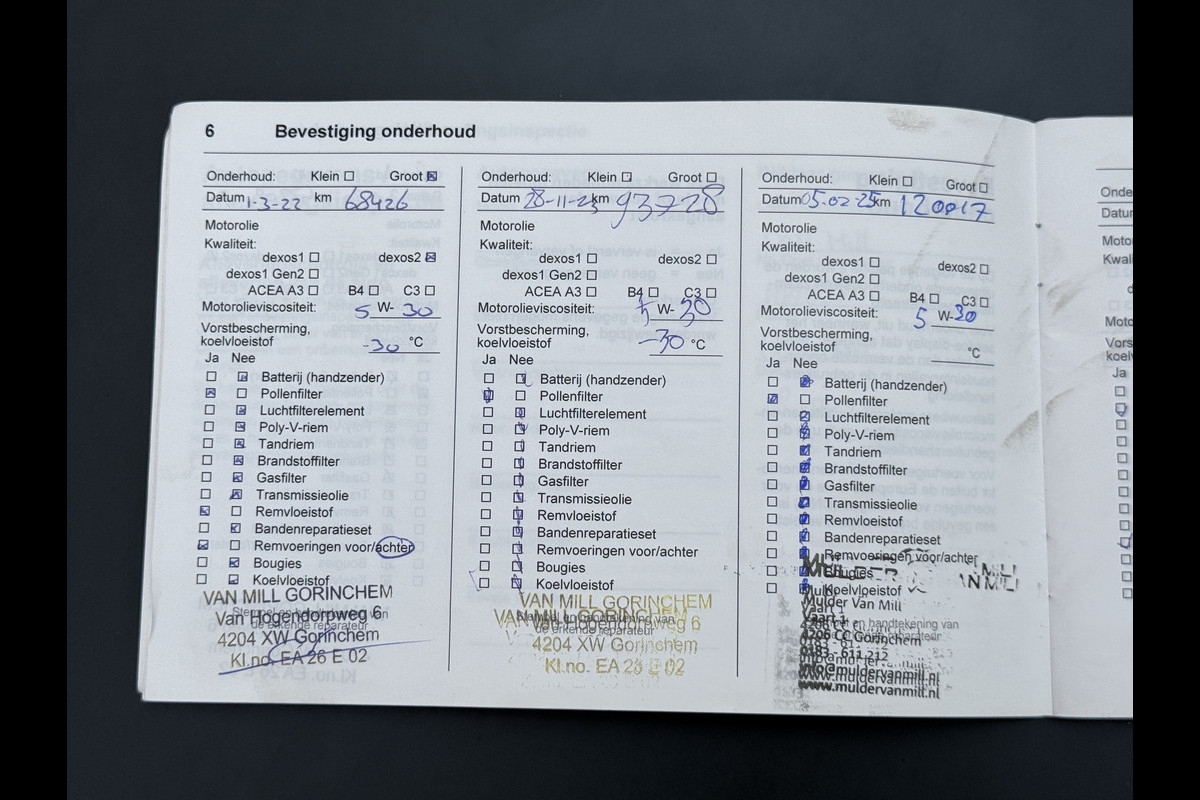 6 Bevestiging onderhoud
Onderhoud: Klein Groot
Datum 1-3-22 km 68426
Motorolie
Kwaliteit:
dexos1 dexos2
dexos1 Gen2
ACEA A3 B4 C3
Motorolieviscositeit: 5 W- 30
Vorstbescherming,
koelvloeistof -30 °C
Ja Nee
Batterij (handzender)
Pollenfilter
Luchtfilterelement
Poly-V-riem
Tandriem
Brandstoffilter
Gasfilter
Transmissieolie
Remvloeistof
Bandenreparatieset
Remvoeringen voor/achter
Bougies
Koelvloeistof
VAN MILL GORINCHEM
Stempel en handtekening van
Van Hogendorpweg 6
de erkende reparateur
4204 XW Gorinchem
Kl.no. EA 26 E 02
Onderhoud: Klein Groot
Datum 28-11-23 km 93728
Motorolie
Kwaliteit:
dexos1 dexos2
dexos1 Gen2
ACEA A3 B4 C3
Motorolieviscositeit: 5 W- 30
Vorstbescherming,
koelvloeistof -30 °C
Ja Nee
Batterij (handzender)
Pollenfilter
Luchtfilterelement
Poly-V-riem
Tandriem
Brandstoffilter
Gasfilter
Transmissieolie
Remvloeistof
Bandenreparatieset
Remvoeringen voor/achter
Bougies
Koelvloeistof
VAN MILL GORINCHEM
VAN MILL GORINCHEM
Van Hogendorpweg 6
de erkende reparateur
4204 XW Gorinchem
Kl.no. EA 26 E 02
Onderhoud: Klein Groot
Datum 05-02-25 km 120017
Motorolie
Kwaliteit:
dexos1 dexos2
dexos1 Gen2
ACEA A3 B4 C3
Motorolieviscositeit: 5 W-30
Vorstbescherming,
koelvloeistof °C
Ja Nee
Batterij (handzender)
Pollenfilter
Luchtfilterelement
Poly-V-riem
Tandriem
Brandstoffilter
Gasfilter
Transmissieolie
Remvloeistof
Bandenreparatieset
Remvoeringen voor/achter
Bougies
Koelvloeistof
Mulder Van Mill
Vaart 1
4206 CC Gorinchem
0183 - 611 212
info@muldervanmill.nl
www.muldervanmill.nl